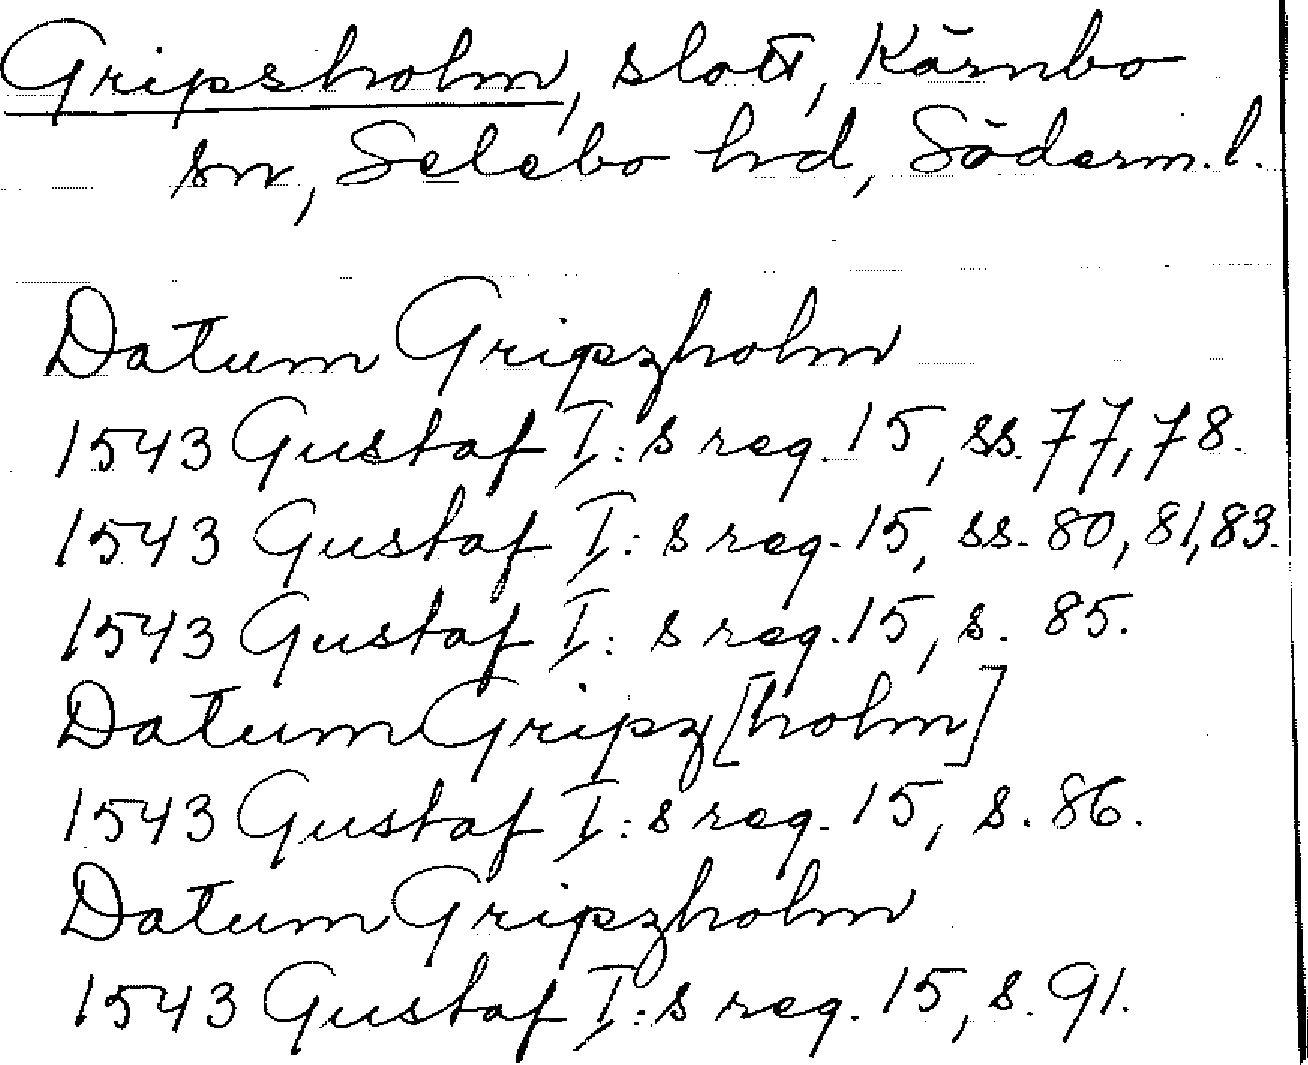 Gripsholm, slott, Kärnbo
sn, Selebo hd, Söderm. l.
Datum Gripzholm
1543 Gustaf I:s reg. 15, ss. 77, 78.
1543 Gustaf I:s reg. 15, ss. 80, 81, 83.
1543 Gustaf I:s reg. 15, s. 85.
Datum Gripz[holm]
1543 Gustaf I:s reg. 15, s. 86.
Datum Gripzholm
1543 Gustaf I:s reg. 15, s. 91.